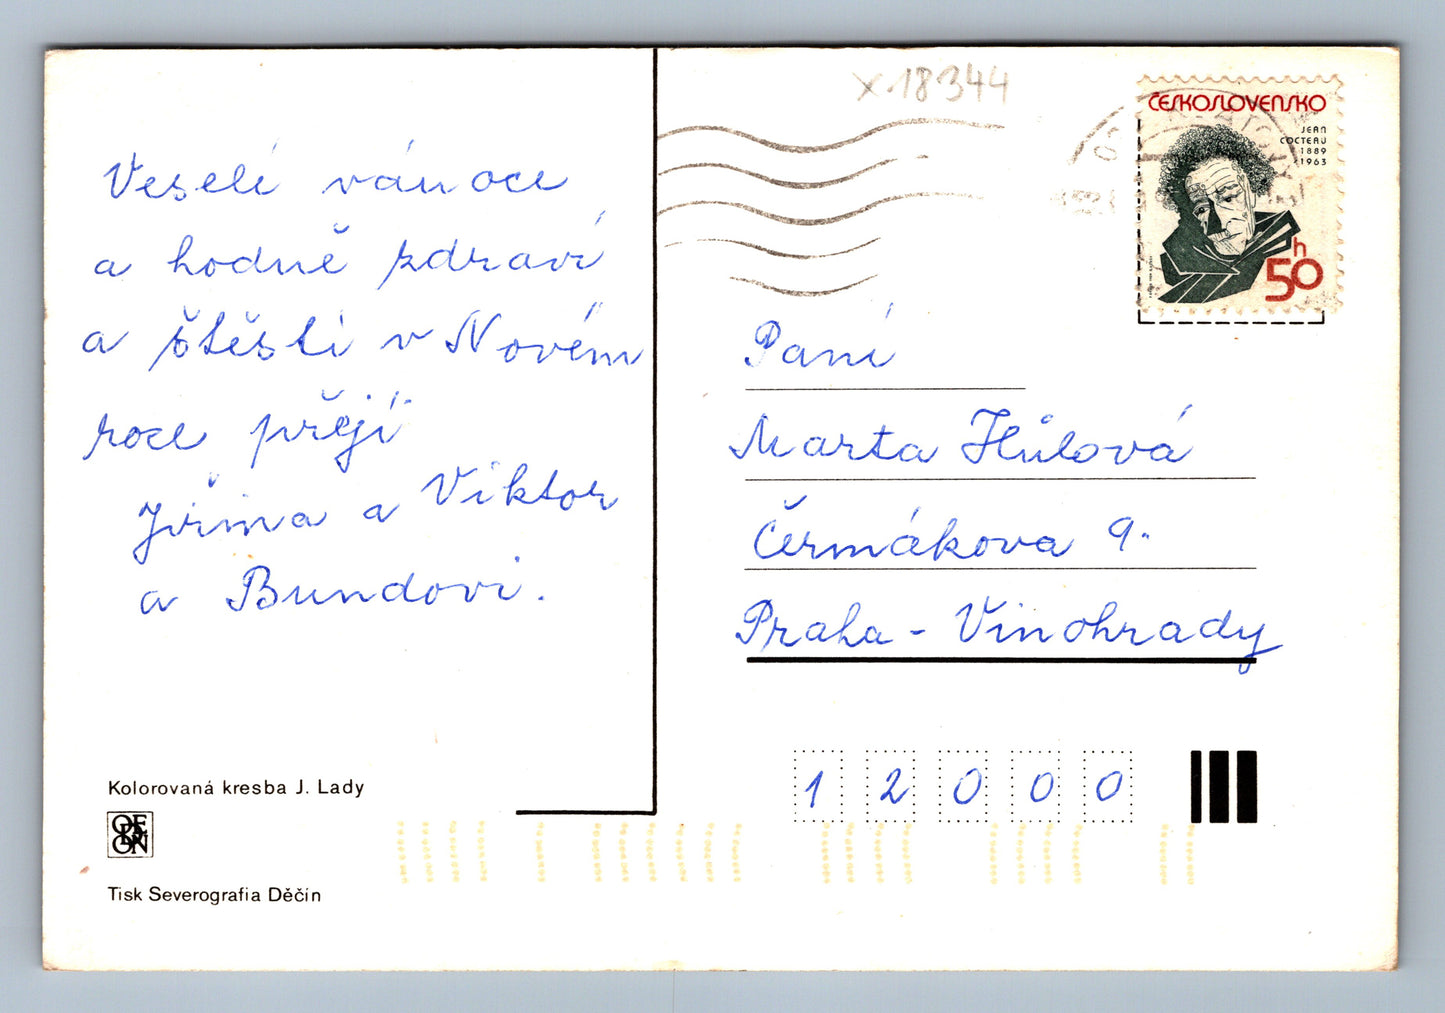 Veselé vánoce
a hodně zdraví
a štěstí v Novém
roce přejí
Jiřina a Viktor
a Bundovi.
Kolorovaná kresba J. Lady
Tisk Severografia Děčín
x 18344
ČESKOSLOVENSKO
JEAN
COCTEAU
1889
1963
50 h
Paní
Marta Hůlová
Čermákova 9.
Praha - Vinohrady
1 2 0 0 0